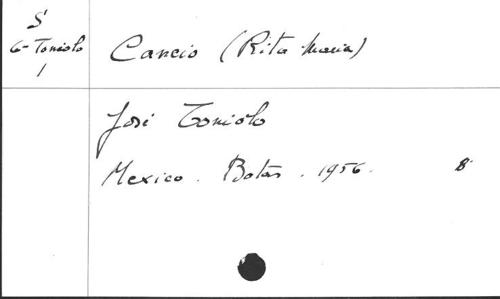 S
6-Toniolo
1
Cancio (Rita Maria)
José Toniolo
Mexico. Botas. 1956. 8º